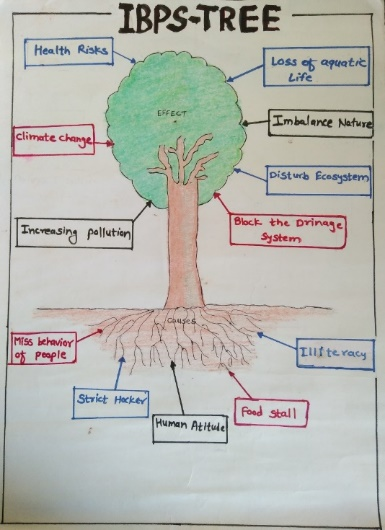 IBPS-TREE
Health Risks
Loss of aquatic
Life
EFFECT
Imbalance Nature
Climate change
Disturb Ecosystem
Increasing pollution
Block the Drinage
System
CAUSES
Miss behavior
of people
Illiteracy
Strict Hocker
Food stall
Human Atitude